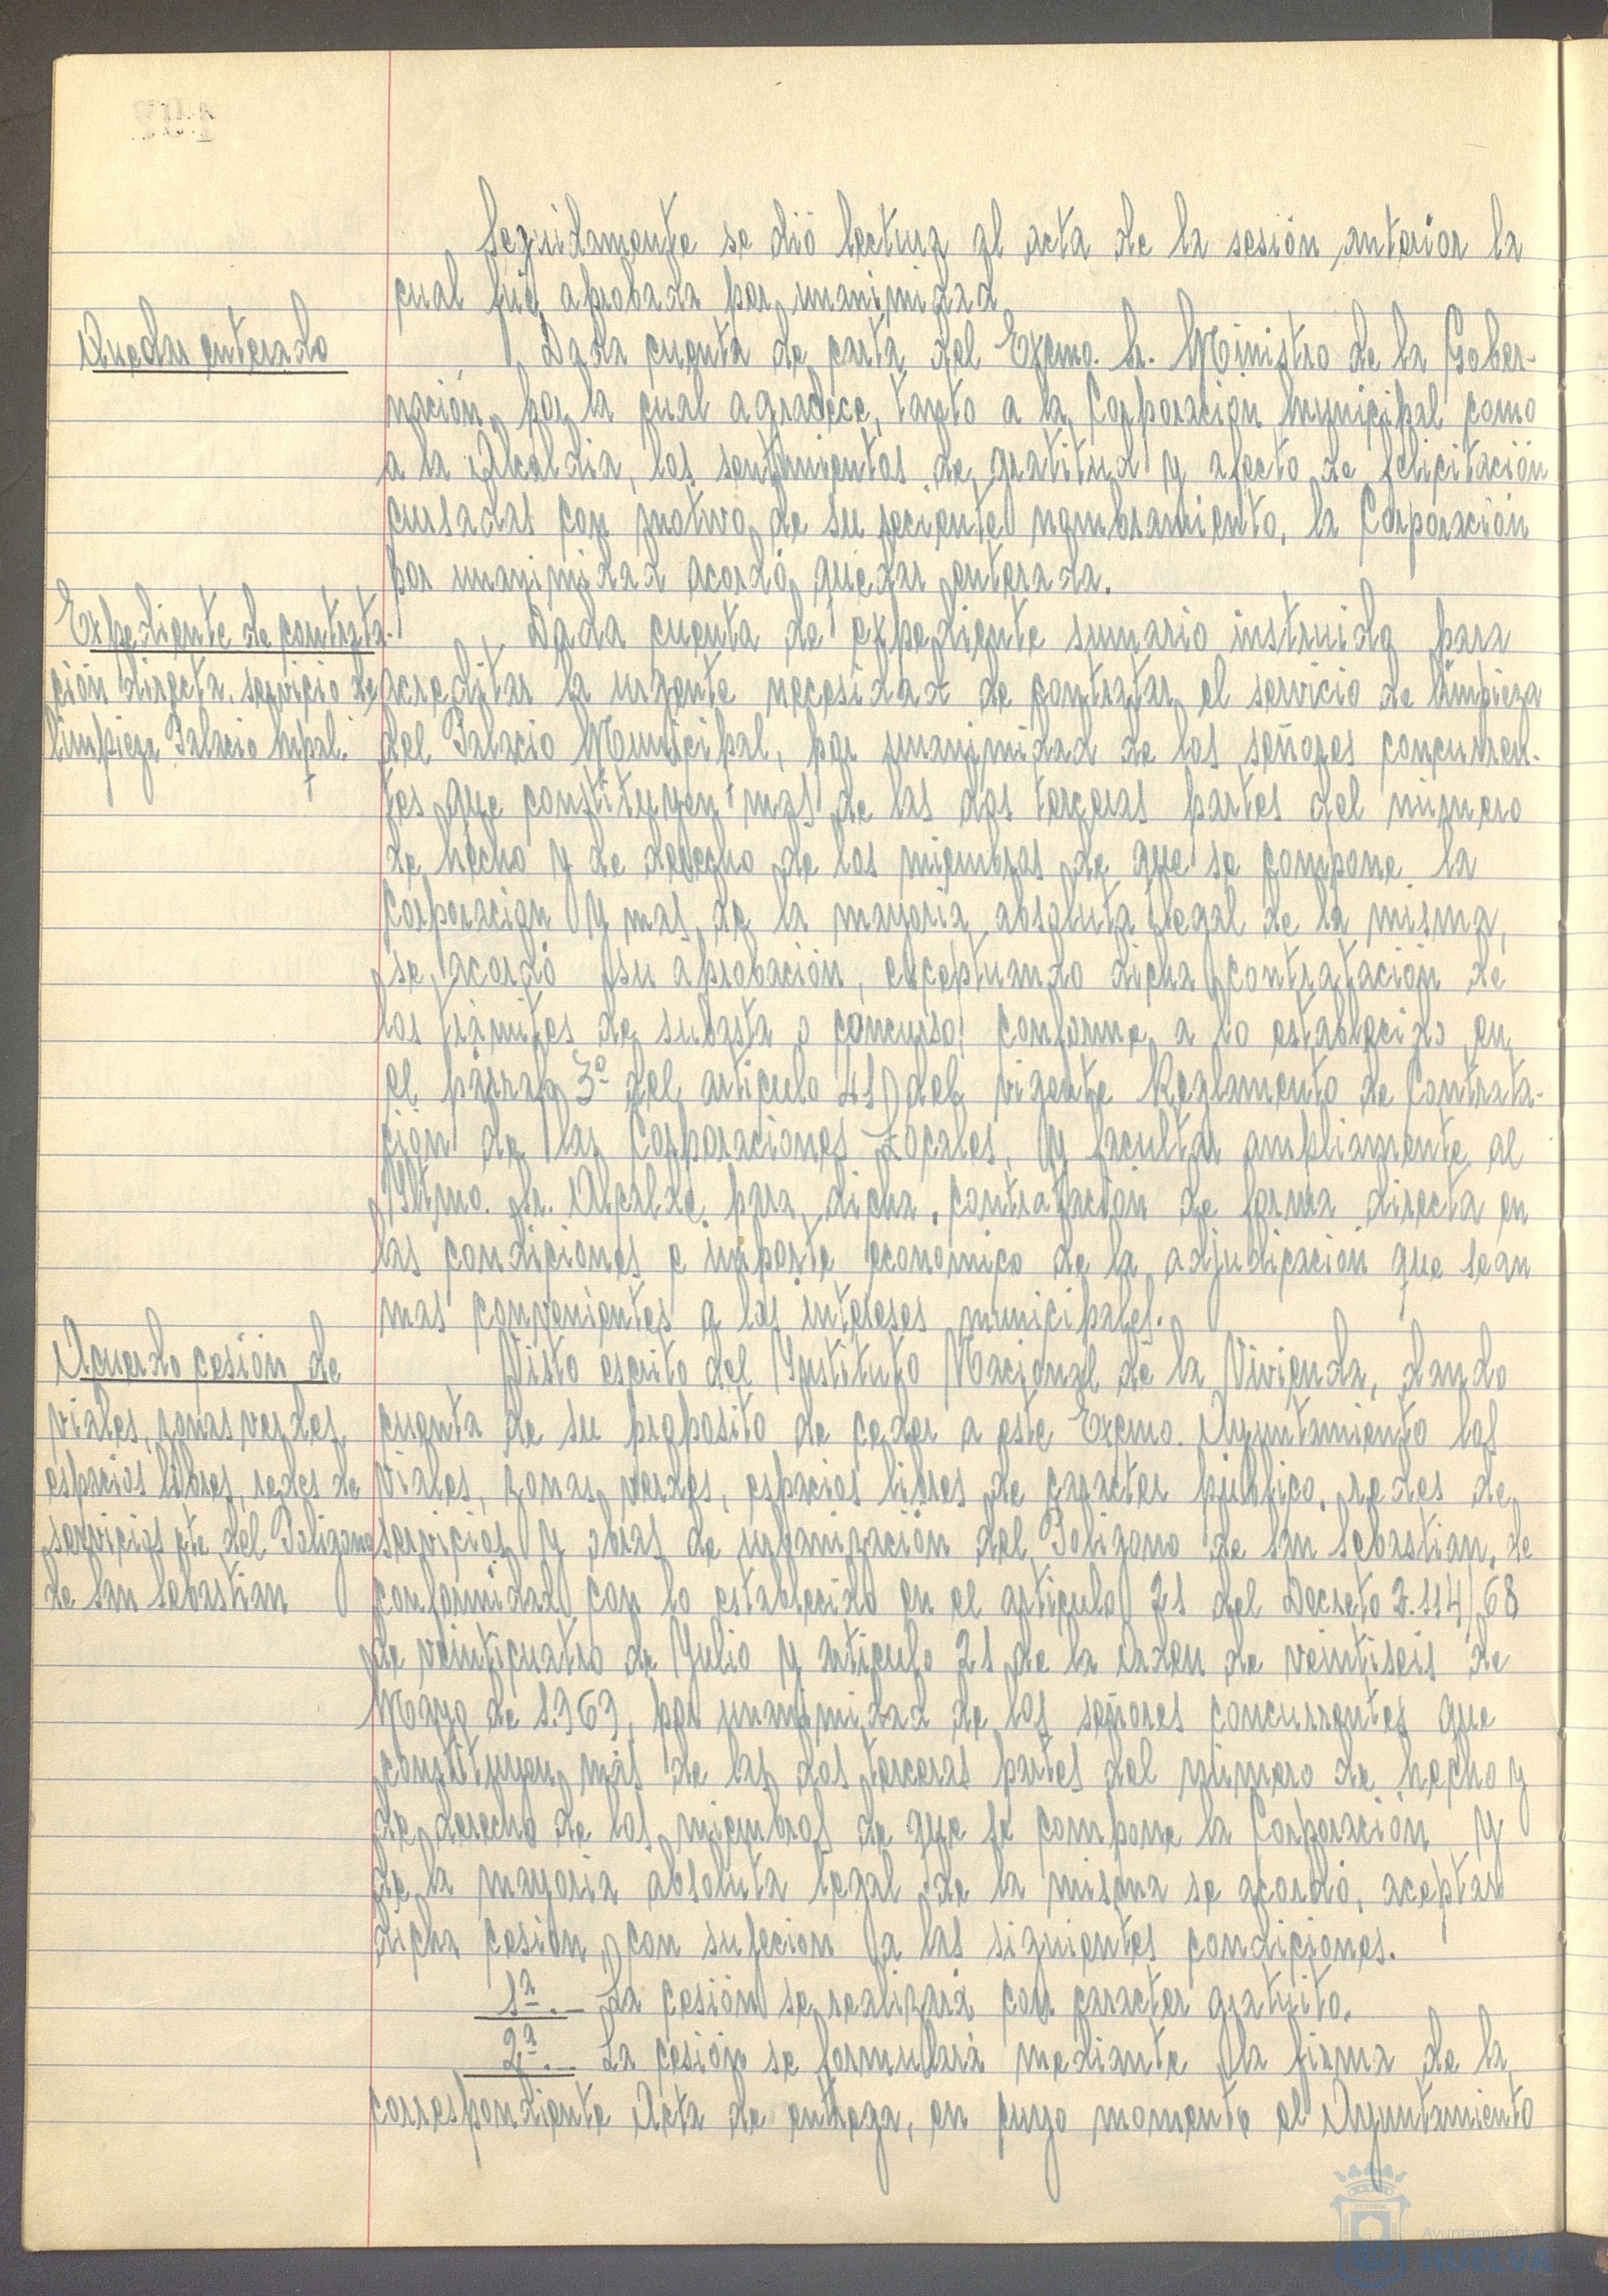 Seguidamente se dió lectura al acta de la sesión anterior la
cual fué aprobada por unanimidad.
Quedar enterado
Dada cuenta de carta del Excmo. Sr. Ministro de la Gober-
nación, por la cual agradece, tanto a la Corporación Municipal como
a la Alcaldia, los sentimientos de gratitud y afecto de felicitación
cursadas con motivo de su reciente nombramiento, la Corporación
por unanimidad acordó quedar enterada.
Expediente de contrata-
ción directa, servicio de
limpieza Palacio Mpal.
Dada cuenta de expediente sumario instruido para
acreditar la urgente necesidad de contratar el servicio de limpieza
del Palacio Municipal, por unanimidad de los señores concurren-
tes que constituyen mas de las dos terceras partes del número
de hecho y de derecho de los miembros de que se compone la
Corporación y mas de la mayoria absoluta legal de la misma,
se acordó su aprobación, exceptuando dicha contratación de
los trámites de subasta o concurso, conforme a lo establecido en
el párrafo 3º del articulo 41 del vigente Reglamento de Contrata-
ción de las Corporaciones Locales, y facultar ampliamente al
Iltmo. Sr. Alcalde para dicha contratación de forma directa en
las condiciones e importe economico de la adjudicación que sean
mas convenientes a los intereses municipales.
Acuerdo cesión de
viales, zonas verdes,
espacios libres, redes de
servicios etc del Poligono
de San Sebastian
Visto escrito del Instituto Nacional de la Vivienda, dando
cuenta de su proposito de ceder a este Excmo. Ayuntamiento los
viales, zonas verdes, espacios libres de caracter público, redes de
servicios y obras de urbanización del Poligono de San Sebastian, de
conformidad con lo establecido en el articulo 21 del Decreto 2.114/68
de veinticuatro de Julio y articulo 21 de la Orden de veintiseis de
Mayo de 1.969, por unanimidad de los señores concurrentes que
constituyen más de las dos terceras partes del número de hecho y
de derecho de los miembros de que se compone la Corporación y
de la mayoria absoluta legal de la misma se acordó, aceptar
dicha cesión, con sujecion a las siguientes condiciones.
1ª.- La cesión se realizará con caracter gratuito.
2ª.- La cesión se formulará mediante la firma de la
correspondiente Acta de entrega, en cuyo momento el Ayuntamiento
Ayuntamiento de
HUELVA